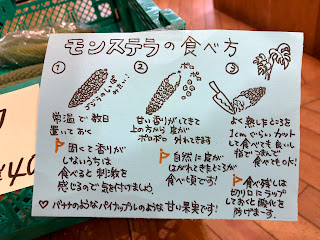 モンステラの食べ方
①
常温で数日
置いておく
固くて香りが
しないうちは
食べると刺激を
感じるので気を付けましょう。
②
ポロ
ポロ
甘い香りがしてきて
上の方から皮が
ポロポロ 外れてきます
自然に皮が
はがれてきたら
食べ頃です!
③
よく熟したところを
1cmぐらいカット
して食べても良いし
指でつまんで
食べてもOK!
食べ残しは
切り口にラップ
しておくと酸化を
防げまーす。
♡バナナのようなパイナップルのような甘い果実です!